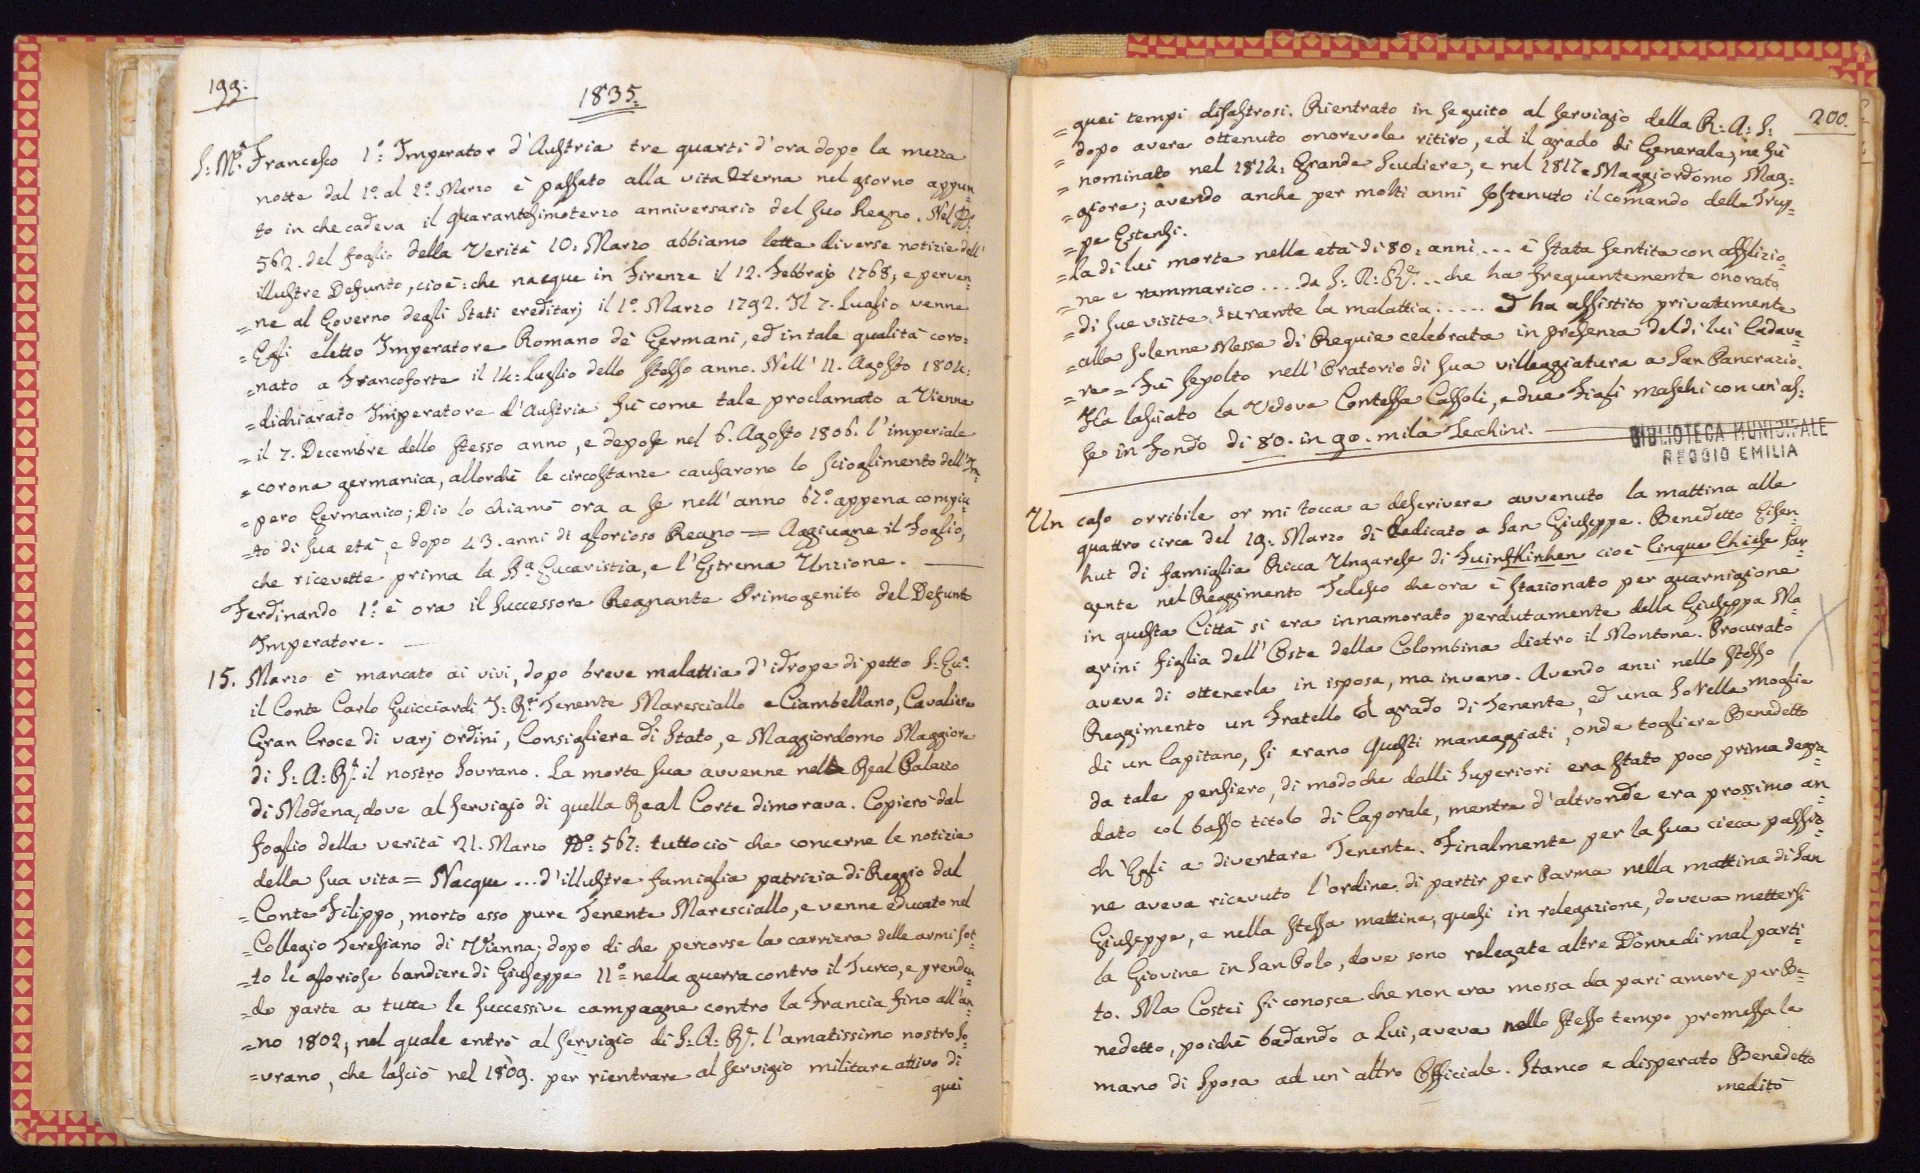 199.
1835.
S: M.a Francesco 1.o Imperator d'Austria tre quarti d'ora dopo la mezza
notte dal 1.o al 2.o Marzo è passato alla vita Eterna nel giorno appun=
to in che cadeva il quarantesimoterzo anniversario del suo Regno. Nel N.o
562. del foglio della Verità 10: Marzo abbiamo lette diverse notizie dell'
illustre Defunto, cioè: che nacque in Firenze il 12. Febbrajo 1768; e perven=
= ne al Governo degli Stati ereditarj il 1.o Marzo 1792. Il 7. Luglio venne
= Egli eletto Imperatore Romano de' Germani, ed in tale qualità coro:
= nato a Francoforte il 14: Luglio dello stesso anno. Nell' 11. Agosto 1804:
= dichiarato Imperatore d'Austria fù come tale proclamato a Vienna
= il 7. Decembre dello stesso anno, e depose nel 6. Agosto 1806. l'imperiale
= corona germanica, allorchè le circostanze causarono lo scioglimento dell'Im=
= pero Germanico; Dio lo chiamò ora a se nell'anno 67.o appena compiu=
= to di sua età, e dopo 43. anni di glorioso Regno = Aggiugne il Foglio,
che ricevette prima la S.a Eucaristia, e l'Estrema Unzione.
Ferdinando 1.o è ora il successore Regnante Primogenito del Defunto
Imperatore.
15. Marzo è mancato ai vivi, dopo breve malattia d'idrope di petto S: Ecc.
il Conte Carlo Guicciardi I: R. Tenente Maresciallo e Ciambellano, Cavaliere
Gran Croce di varj ordini, Consigliere di Stato, e Maggiordomo Maggiore
di S: A: R. il nostro Sovrano. La morte sua avvenne nella Real Palazzo
di Modena, dove al servigio di quella Real Corte dimorava. Copierò dal
foglio della verità 21. Marzo N.o 567: tuttociò che concerne le notizie
della sua vita = Nacque ... d'illustre famiglia patrizia di Reggio dal
= Conte Filippo, morto esso pure Tenente Maresciallo, e venne educato nel
= Collegio Teresiano di Vienna; dopo di che percorse la carriera delle armi sot=
= to le gloriose bandiere di Giuseppe 11.o nella guerra contro il Turco, e prenden=
= do parte a tutte le successive campagne contro la Francia fino all'an=
= no 1802, nel quale entrò al servigio di S: A: R. l'amatissimo nostro So=
= vrano, che lasciò nel 1809. per rientrare al servigio militare attivo di
quei
200.
= quei tempi disastrosi. Rientrato in seguito al servigio della R: A: S:
= dopo avere ottenuto onorevole ritiro, ed il grado di Generale, ne fù
= nominato nel 1814: Grande Scudiere, e nel 1817. Maggiordomo Mag=
= giore; avendo anche per molti anni sostenuto il comando delle Trup=
= pe Estensi.
= La di lui morte nella età di 80: anni ... è stata sentita con afflizio=
= ne e rammarico .... da S: A: R. .. che ha frequentemente onorato
= di sue visite durante la malattia; ..... ed ha assistito privatamente
= alla solenne Messa di Requie celebrata in presenza del di lui Cadave=
= re = Fù sepolto nell'Oratorio di sua villeggiatura a San Pancrazio.
Ha lasciato la Vedova Contessa Cassoli, e due Figli maschi con un'as:
se in Fondo di 80. in 90. mila Zecchini.
BIBLIOTECA MUNICIPALE
REGGIO EMILIA
Un caso orribile or mi tocca a descrivere avvenuto la mattina alle
quattro circa del 19: Marzo dì dedicato a San Giuseppe. Benedetto Eisen=
hut di famiglia Ricca Ungarese di Fuinfkirken cioè Cinque Chiese Sar=
gente nel Reggimento Tedesco che ora è stazionato per guarnigione
in questa Città si era innamorato perdutamente della Giuseppa Ma=
grini figlia dell'Oste della Colombina dietro il Montone. Procurato
aveva di ottenerla in isposa, ma invano. Avendo anzi nello stesso
Reggimento un Fratello col grado di Tenente, ed una Sorella moglie
di un Capitano, si erano questi maneggiati, onde togliere Benedetto
da tale pensiero, di modochè dalli superiori era stato poco prima degra=
dato col basso titolo di Caporale, mentre d'altronde era prossimo an=
ch'Egli a diventare Tenente. Finalmente per la sua cieca passio=
ne aveva ricevuto l'ordine di partir per Parma nella mattina di San
Giuseppe, e nella stessa mattina, quasi in relegazione, doveva mettersi
la Giovine in San Polo, dove sono relegate altre Donne di mal parti=
to. Ma Costei si conosce che non era mossa da pari amore per Be=
nedetto, poichè badando a Lui, aveva nello stesso tempo promessa la
mano di Sposa ad un'altro Officiale. Stanco e disperato Benedetto
meditò